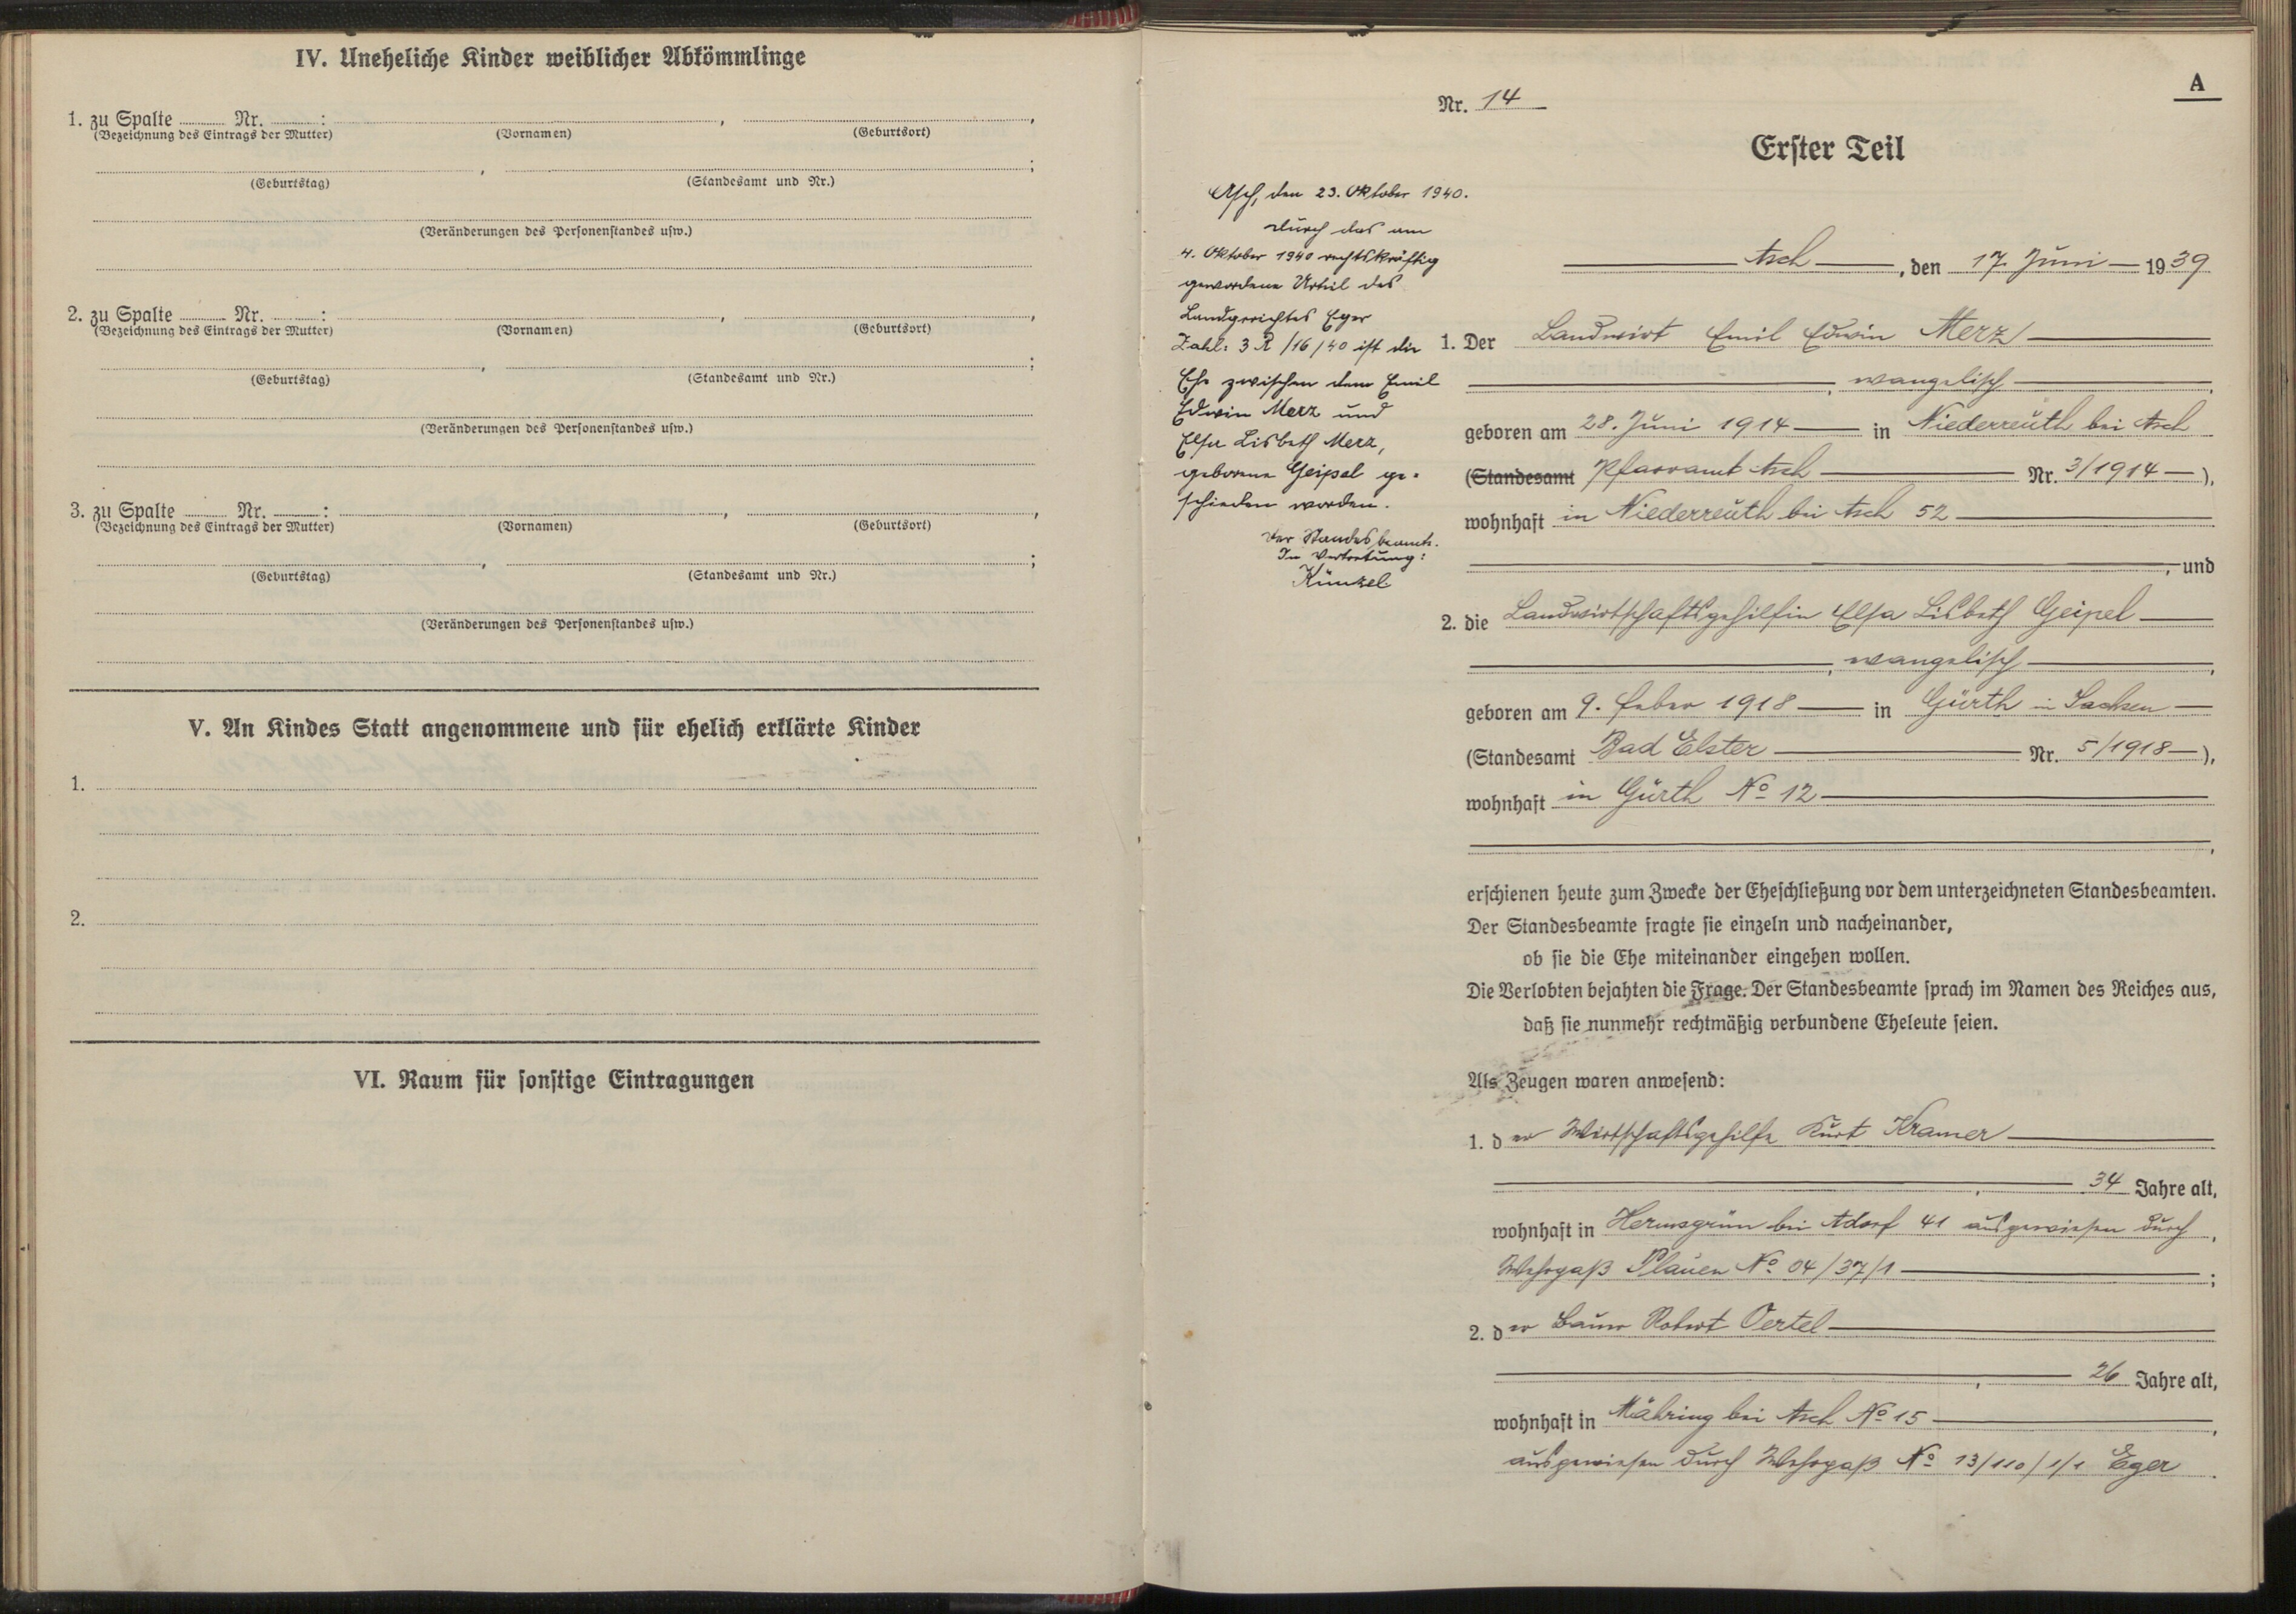 IV. Uneheliche Kinder weiblicher Abkömmlinge
1. zu Spalte ........ Nr. ........ :
(Bezeichnung des Eintrags der Mutter) (Vornamen) (Geburtsort)
(Geburtstag) (Standesamt und Nr.)
(Veränderungen des Personenstandes usw.)
2. zu Spalte ........ Nr. ........ :
(Bezeichnung des Eintrags der Mutter) (Vornamen) (Geburtsort)
(Geburtstag) (Standesamt und Nr.)
(Veränderungen des Personenstandes usw.)
3. zu Spalte ........ Nr. ........ :
(Bezeichnung des Eintrags der Mutter) (Vornamen) (Geburtsort)
(Geburtstag) (Standesamt und Nr.)
(Veränderungen des Personenstandes usw.)
V. An Kindes Statt angenommene und für ehelich erklärte Kinder
1.
2.
VI. Raum für sonstige Eintragungen
A
Nr. 14
Erster Teil
Asch, den 23. Oktober 1940.
Durch das am
4. Oktober 1940 rechtskräftig
gewordene Urteil des
Landgerichtes Eger
Zahl: 3 R /16/40 ist die
Ehe zwischen dem Emil
Edwin Merz und
Elsa Lisbeth Merz,
geborene Geipel ge-
schieden worden.
Der Standesbeamte.
In Vertretung:
Künzel
Asch, den 17. Juni 1939
1. Der Landwirt Emil Edwin Merz
, evangelisch,
geboren am 28. Juni 1914 in Niederreuth bei Asch
(Standesamt Pfarramt Asch Nr. 3/1914),
wohnhaft in Niederreuth bei Asch 52
, und
2. die Landwirtschaftsgehilfin Elsa Lisbeth Geipel
, evangelisch,
geboren am 9. Feber 1918 in Gürth in Sachsen
(Standesamt Bad Elster Nr. 5/1918),
wohnhaft in Gürth No 12
,
erschienen heute zum Zwecke der Eheschließung vor dem unterzeichneten Standesbeamten.
Der Standesbeamte fragte sie einzeln und nacheinander,
ob sie die Ehe miteinander eingehen wollen.
Die Verlobten bejahten die Frage. Der Standesbeamte sprach im Namen des Reiches aus,
daß sie nunmehr rechtmäßig verbundene Eheleute seien.
Als Zeugen waren anwesend:
1. der Wirtschaftsgehilfe Kurt Kramer
, 34 Jahre alt,
wohnhaft in Hermsgrün bei Adorf 41 ausgewiesen durch,
Wehrpaß Plauen No 04/37/1;
2. der Bauer Robert Oertel
, 26 Jahre alt,
wohnhaft in Mähring bei Asch No 15,
ausgewiesen durch Wehrpaß No 13/110/1/1 Eger.